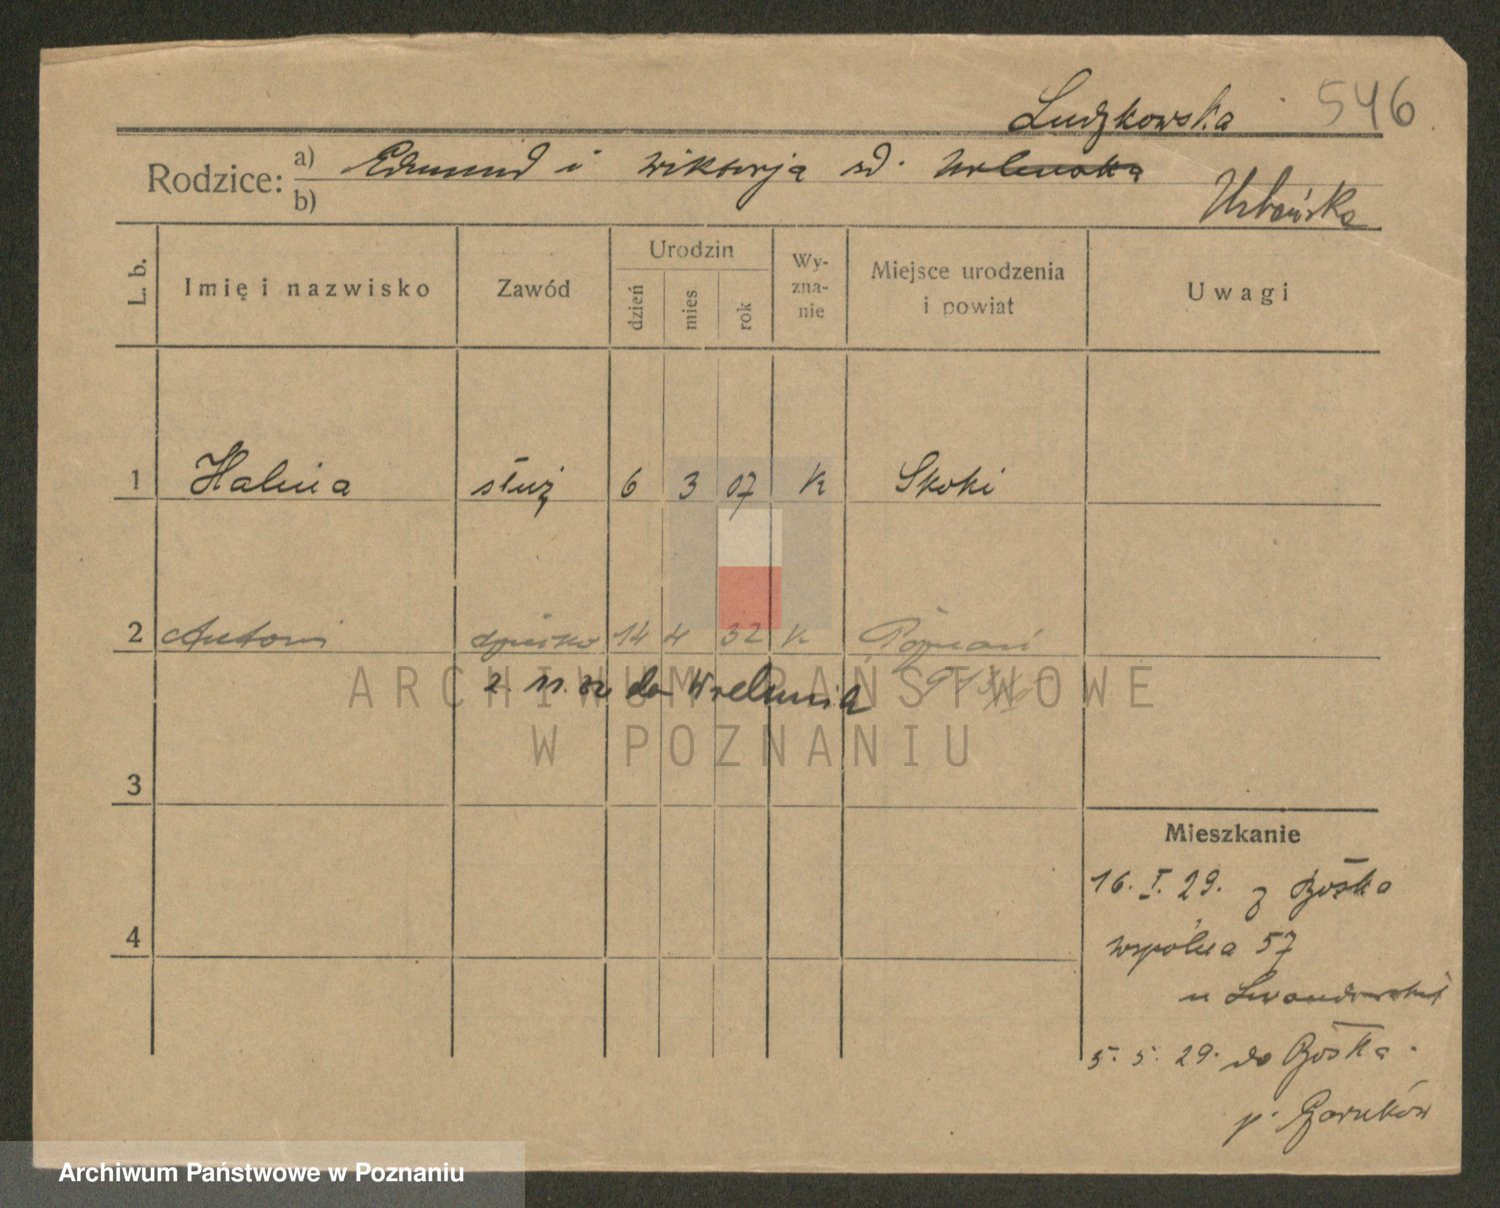 Ludzkowska 546
Rodzice: a) Edmund i Wiktorja zd.
b) Urbańska
L. b. Imię i nazwisko Zawód Urodzin dzień mies rok Wy-zna-nie Miejsce urodzenia i powiat Uwagi
1 Halina służ 6 3 07 K Skoki
2 Antoni dziecko 14 4 32 K Poznań
2. 11. 32 do Wielunia
3
Mieszkanie
16. I. 29. z
4
Wspólna 57
u Lewandowski
5. 5. 29. do
p. Czarnków
ARCHIWUM PAŃSTWOWE
W POZNANIU
Archiwum Państwowe w Poznaniu